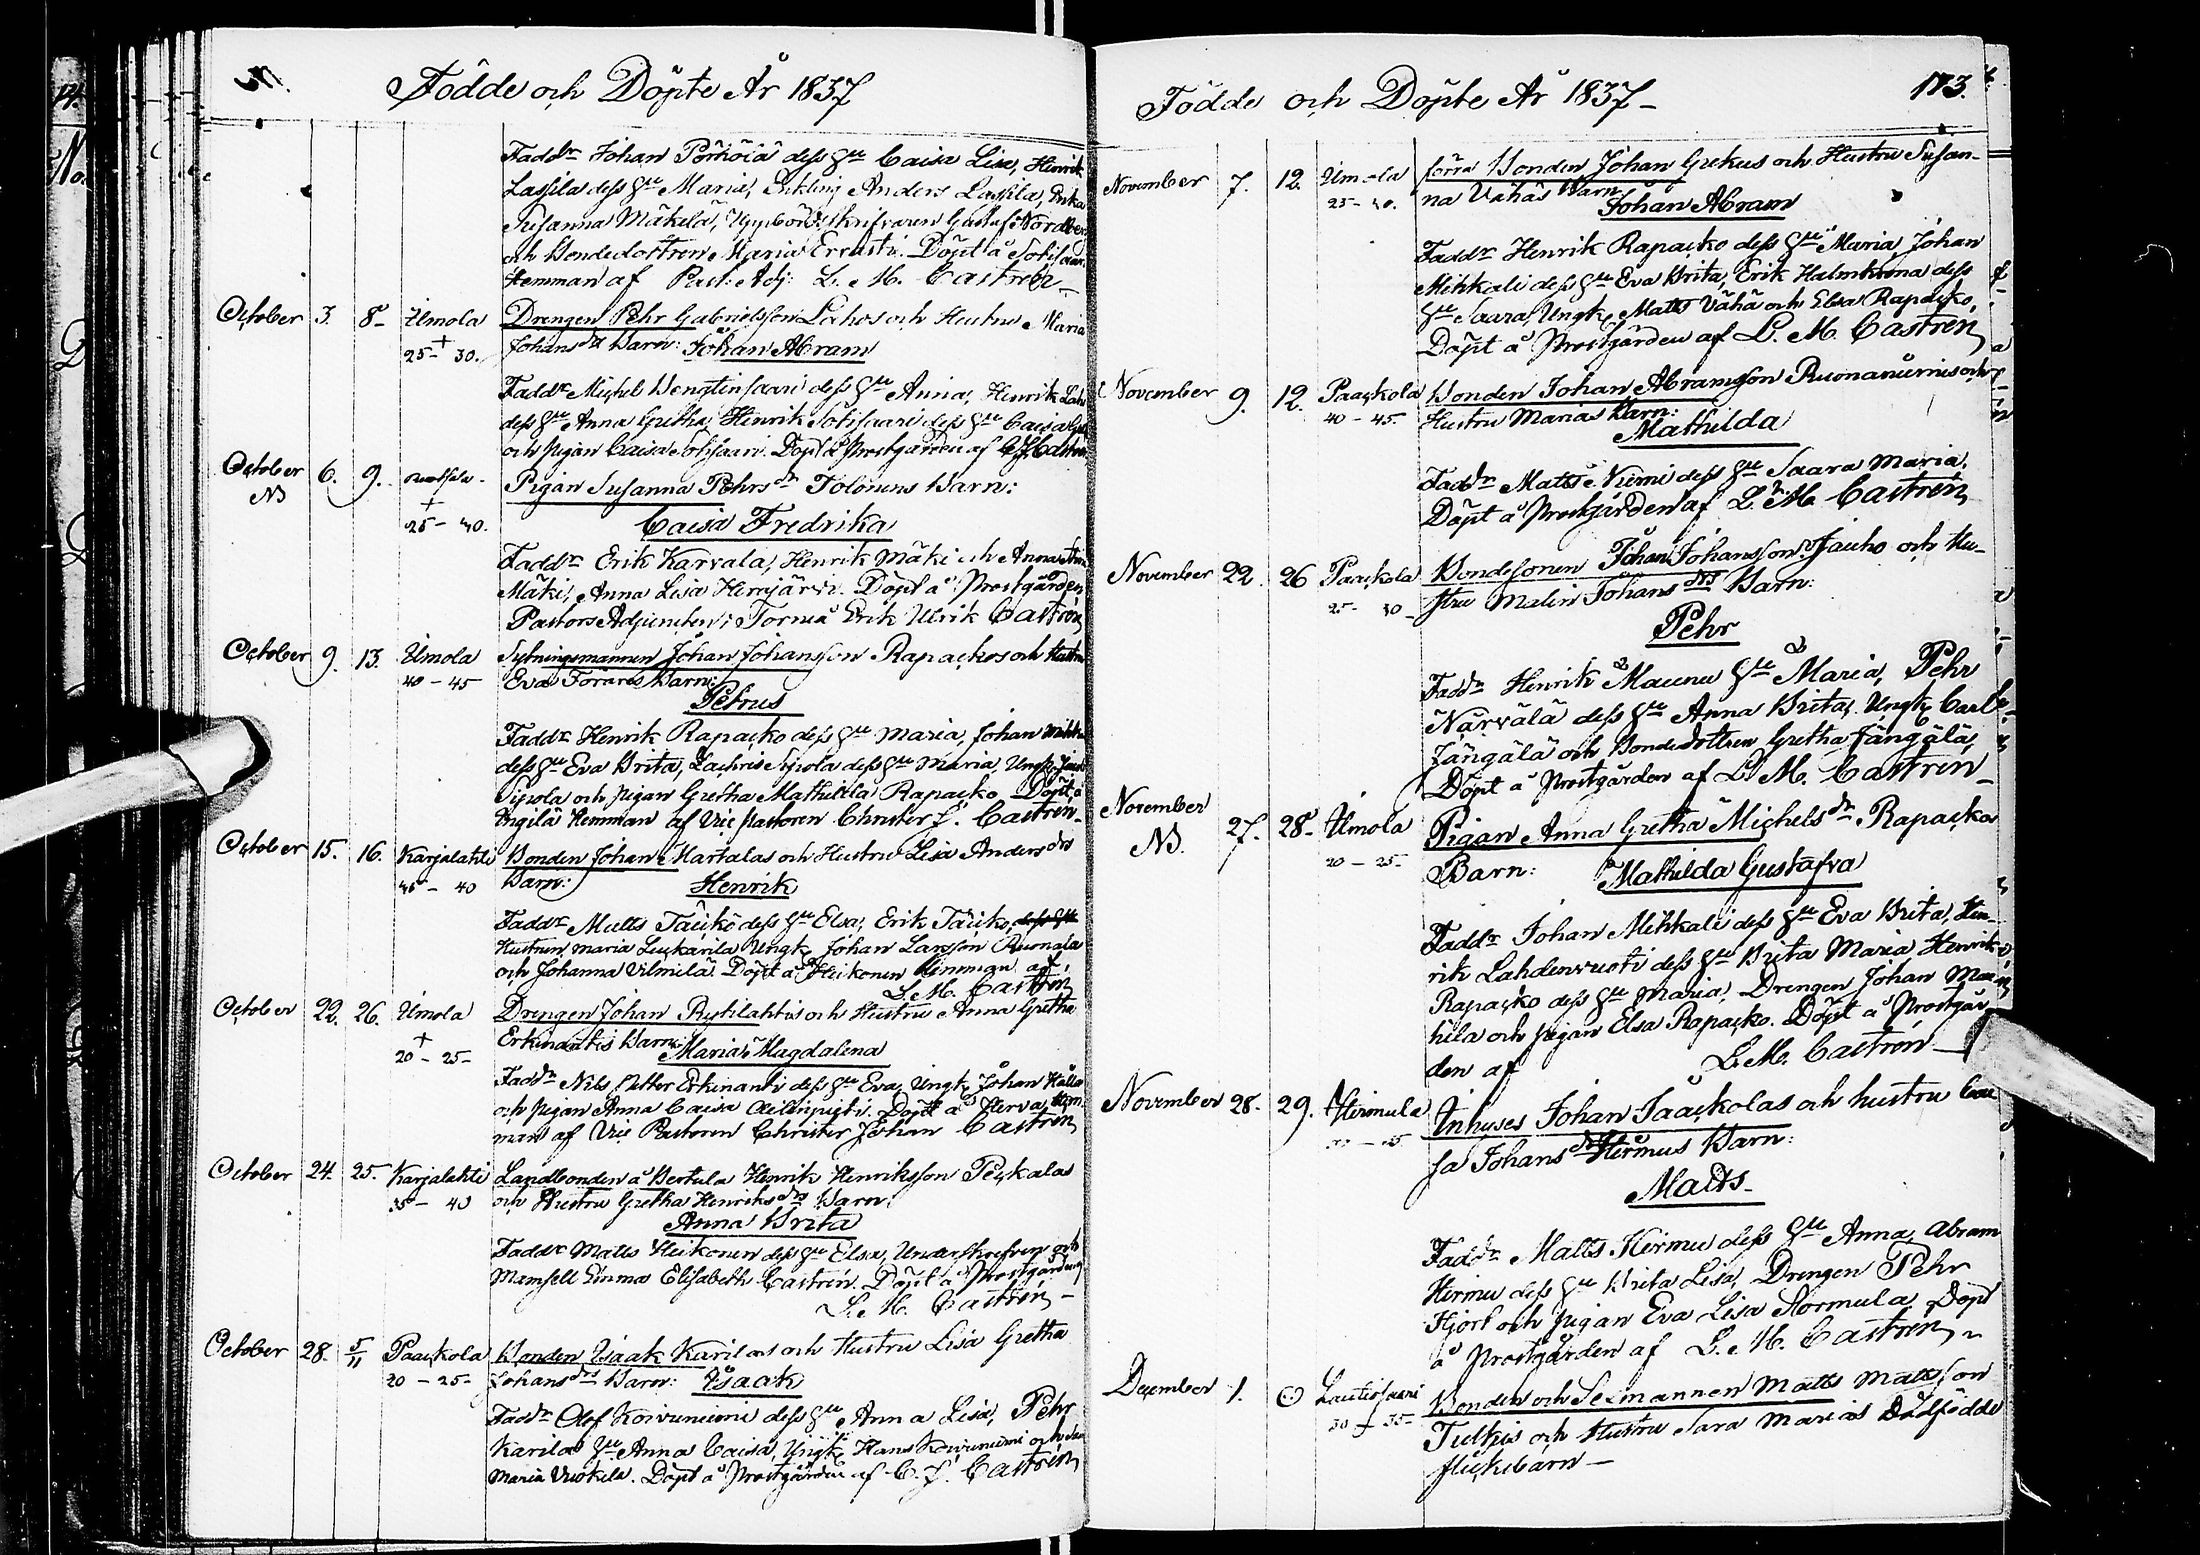 Födde och Döpte År 1837
Faddr Johan Pörhölä dess Hu Caisa Lisa, Henrik
Lassila dess Hu Maria, Enkling Anders Lassila, Enka
Susanna Mäkelä, Uppbördsskrifvaren Gustaf Nordberg
och Bondedottren Maria Errasti. Döpt å Sotisaari
Hemman af Past: Adj: L. M. Castrén
October 3. 8 Ilmola Drengen Pehr Gabrielsson Lahos och Hustru Maria
+ 25–30. Johansdrs Barn: Johan Abram
Faddr Michel Hengtinsaari dess Hu Anna, Henrik Laho
dess Hu Anna Gretha, Henrik Sotisaari dess Hu Caisa
och Pigan Caisa Sotisaari. Döpt å Prostgården af C. J. Castrén
October 6. 9. Pigan Susanna Pehrsdr Tolonens Barn:
NB + 25–30. Caisa Fredrika
Faddr Erik Karvala, Henrik Mäki och Anna
Mäki, Anna Lisa Hemjärvi. Döpt å Prostgården
Pastors Adjuncten i Torneå Erik Ulrik Castrén
October 9. 13. Ilmola Sytningsmannen Johan Johansson Rapackos och Hustru
40–45 Eva Barn:
Petrus
Faddr Henrik Rapacko dess Hu Maria, Johan Mihkali
dess Hu Eva Brita, Zachris Sipola dess Hu Maria, Ungk
Sipola och Pigan Gretha Mathilda Rapacko. Döpt å
Hemman af Vice Pastoren Christer J. Castrén
October 15. 16. Karjalahti Bonden Johan Martalas och Hustru Lisa Andersdrs
35–40 Barn: Henrik
Faddr Matts Täicko dess Hu Elsa, Erik Täicko, dess Hu
Hustrun Maria Luckarila Ungk Johan Larsson Ruonala
och Johanna Vilmilä. Döpt å Heikonen Hemman af
L. M. Castrén
October 22. 26. Ilmola Drengen Johan Rytilahtis och Hustru Anna Gretha
+ 20–25 Erkinanttis Barn: Maria Magdalena
Faddr Nils Petter Erkinantti dess Hu Eva, Ungk Johan
och Pigan Anna Caisa Döpt å Herva Hem
man af Vice Pastoren Christer Johan Castrén
October 24. 25. Karjalahti Landbonden å Bertula Henrik Henriksson Peckalas
35–40 och Hustru Gretha Henriksdrs Barn:
Anna Brita
Faddr Matts Heikonen dess Hu Elsa, Underskrefven och
Mamsell Emma Elisabeth Castrén. Döpt å Prostgården
L. M. Castrén
October 28. 5/11 Paackola Bonden Isaak Karilas och Hustru Lisa Gretha
20–25 Johansdrs Barn: Isaak
Faddr Olof Koivuniemi dess Hu Anna Lisa, Pehr
Karilas Hu Anna Caisa, Ungk Hans Koivuniemi och
Maria Vuokila. Döpt å Prostgården af C. J. Castrén
Födde och Döpte År 1837 173.
November 7. 12. Ilmola förra Bonden Johan Grekus och Hustru Susan-
25–30. na Vähäs Barn:
Johan Abram
Faddr Henrik Rapacko dess Hu Maria, Johan
Mihkali dess Hu Eva Brita, Erik Halmkrona dess
Hu Saara, Ungk Matts Vähä och Elsa Rapacko.
Döpt å Prostgården af L. M. Castrén
November 9. 12. Paackola Bonden Johan Abramsson Ruonaniemis och
40–45 Hustru Marias Barn:
Mathilda
Faddr Matts Niemi dess Hu Saara Maria.
Döpt å Prostgården af L. M. Castrén
November 22. 26 Paackola Bondesonen Johan Johansson Jauho och Hu-
25–30 stru Malin Johansdrs Barn:
Pehr
Faddr Henrik Maunu Hu Maria, Pehr
Närvälä dess Hu Anna Brita, Ungk Carl
Jängälä och Bondedottren Gretha Jängälä,
Döpt å Prostgården af L. M. Castrén
November 27. 28. Ilmola Pigan Anna Gretha Michelsdr Rapackos
NB. 20–25 Barn: Mathilda Gustafva
Faddr Johan Mihkali dess Hu Eva Brita, Hen-
rik Lahdenvuoti dess Hu Brita Maria, Henrik
Rapacko dess Hu Maria, Drengen Johan Mar
kila och Pigan Elsa Rapacko. Döpt å Prostgår
den af L. M. Castrén
November 28. 29. Hirmula Inhyses Johan Paackolas och hustru Cai
sa Johansdr Hirmus Barn:
Matts
Faddr Matts Hirmu dess Hu Anna, Abram
Hirmu dess Hu Brita Lisa, Drengen Pehr
Hjort och Pigan Eva Lisa Kormula Döpt
å Prostgården af L. M. Castrén
December 1. Lautiosaari Bonden och Sexmannen Matts Mattsson
30–35 Tulkis och Hustru Sara Marias Dödfödde
flickebarn